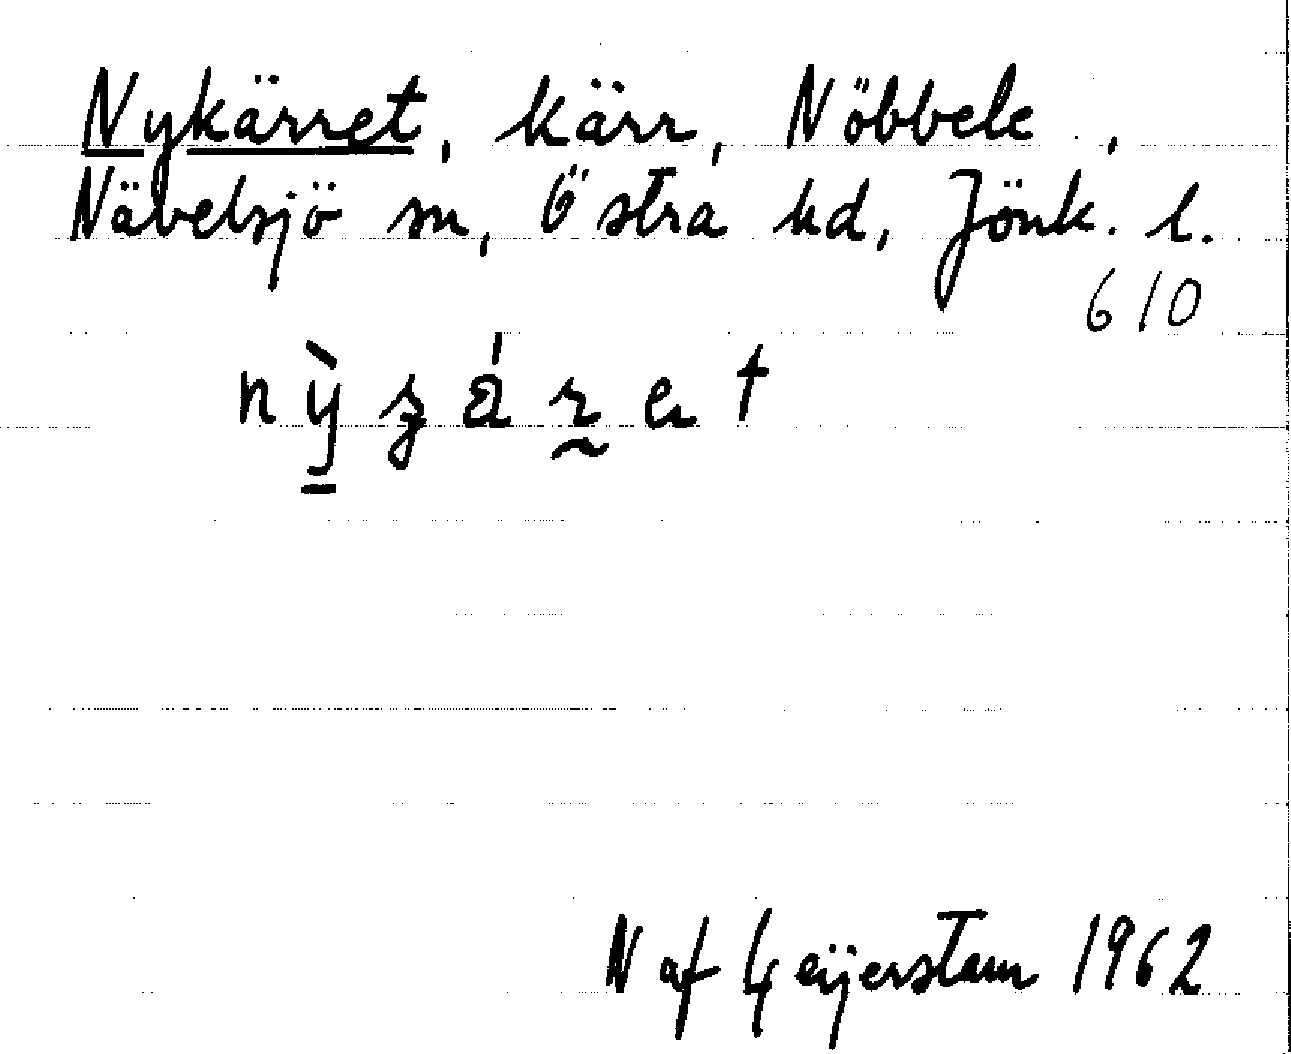 Nykärret, kärr, Nöbbele,
Nävelsjö sn, Östra hd, Jönk. l.
610
N af Geijerstam 1962